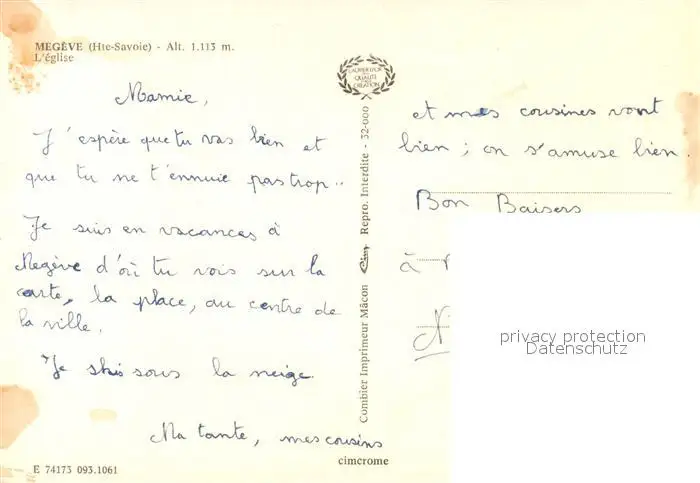 MEGÈVE (Hte-Savoie) - Alt. 1.113 m.
L'église
Mamie,
J'espère que tu vas bien et
que tu ne t'ennuie pas trop..
Je suis en vacances à
Megève d'où tu vois sur la
carte, la place, au centre de
la ville.
Je skis sous la neige.
Ma tante, mes cousins
E 74173 093.1061
cimcrome
LAURIER D'OR
DE LA
QUALITÉ
CREATION
Combier Imprimeur Mâcon Cim Repro. Interdite - 32-000
et mes cousines vont
bien ; on s'amuse bien.
Bon Baisers
à
privacy protection
Datenschutz